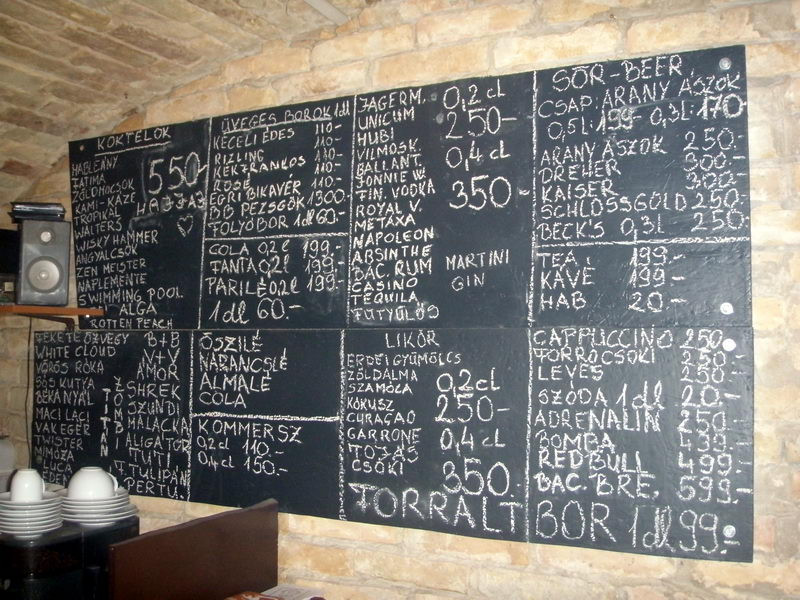 KOKTÉLOK
HABLEÁNY
ZATIMA
ZÖLDMOCSOK
KAMI-KAZE
TROPIKÁL
WALTERS
WISKY HAMMER
ANGYALCSÓK
ZEN MEISTER
NAPLEMENTE
SWIMMING POOL
ALGA
ROTTEN PEACH
550.-
ÜVEGES BOROK 1dl
KECELI ÉDES 110.-
RIZLING 110.-
KÉKFRANKOS 130.-
ROSÉ 110.-
EGRI BIKAVÉR 140.-
BB PEZSGŐK 1300.-
FOLYÓBOR 1dl 60.-
COLA 0,2l 199.-
FANTA 0,2l 199.-
PARILÉ 0,2l 199.-
1dl 60.-
JÄGERM.
UNICUM
HUBI
VILMOSK.
BALLANT.
JONNIE W.
FIN. VODKA
ROYAL V.
METAXA
NAPOLEON
ABSINTHE
BAC. RUM
CASINO
TEQUILA
FÜTYÜLŐS
0,2 cl
250.-
0,4 cl
350.-
MARTINI
GIN
SÖR-BEER
CSAP: ARANY ÁSZOK
0,5l 199- 0,3l 170-
ARANY ÁSZOK 250.-
DREHER 300.-
KAISER 300.-
SCHLOSSGOLD 250.-
BECK'S 0,3l 250.-
TEA 199.-
KÁVÉ 199.-
HAB 20.-
FEKETE ÖZVEGY
WHITE CLOUD
VÖRÖS RÓKA
SÓS KUTYA
BÉKANYÁL
MACI LACI
VAK EGÉR
TWISTER
MIMÓZA
LUCA
TITÁN
ZOMBI
B+B
V+V
AMOR
SHREK
SZUNDI
MALACKA
ALIGÁTOR
TUTI
TULIPÁN
PERTU.
ŐSZILÉ
NARANCSLÉ
ALMALÉ
COLA
KOMMERSZ
0,2 cl 110.-
0,4 cl 150.-
LIKŐR
ERDEI GYÜMÖLCS
ZÖLDALMA
SZAMÓCA
KÓKUSZ
CURAÇAO
GARRONE
TOJÁS
CSOKI
0,2 cl
250.-
0,4 cl
350.
FORRALT BOR 1dl 99.-
CAPPUCCINO 250.-
FORRÓCSOKI 250.-
LEVES 250.-
SZÓDA 1dl 20.-
ADRENALIN 250.-
BOMBA 439.-
RED BULL 499.-
BAC. BRE. 599.-